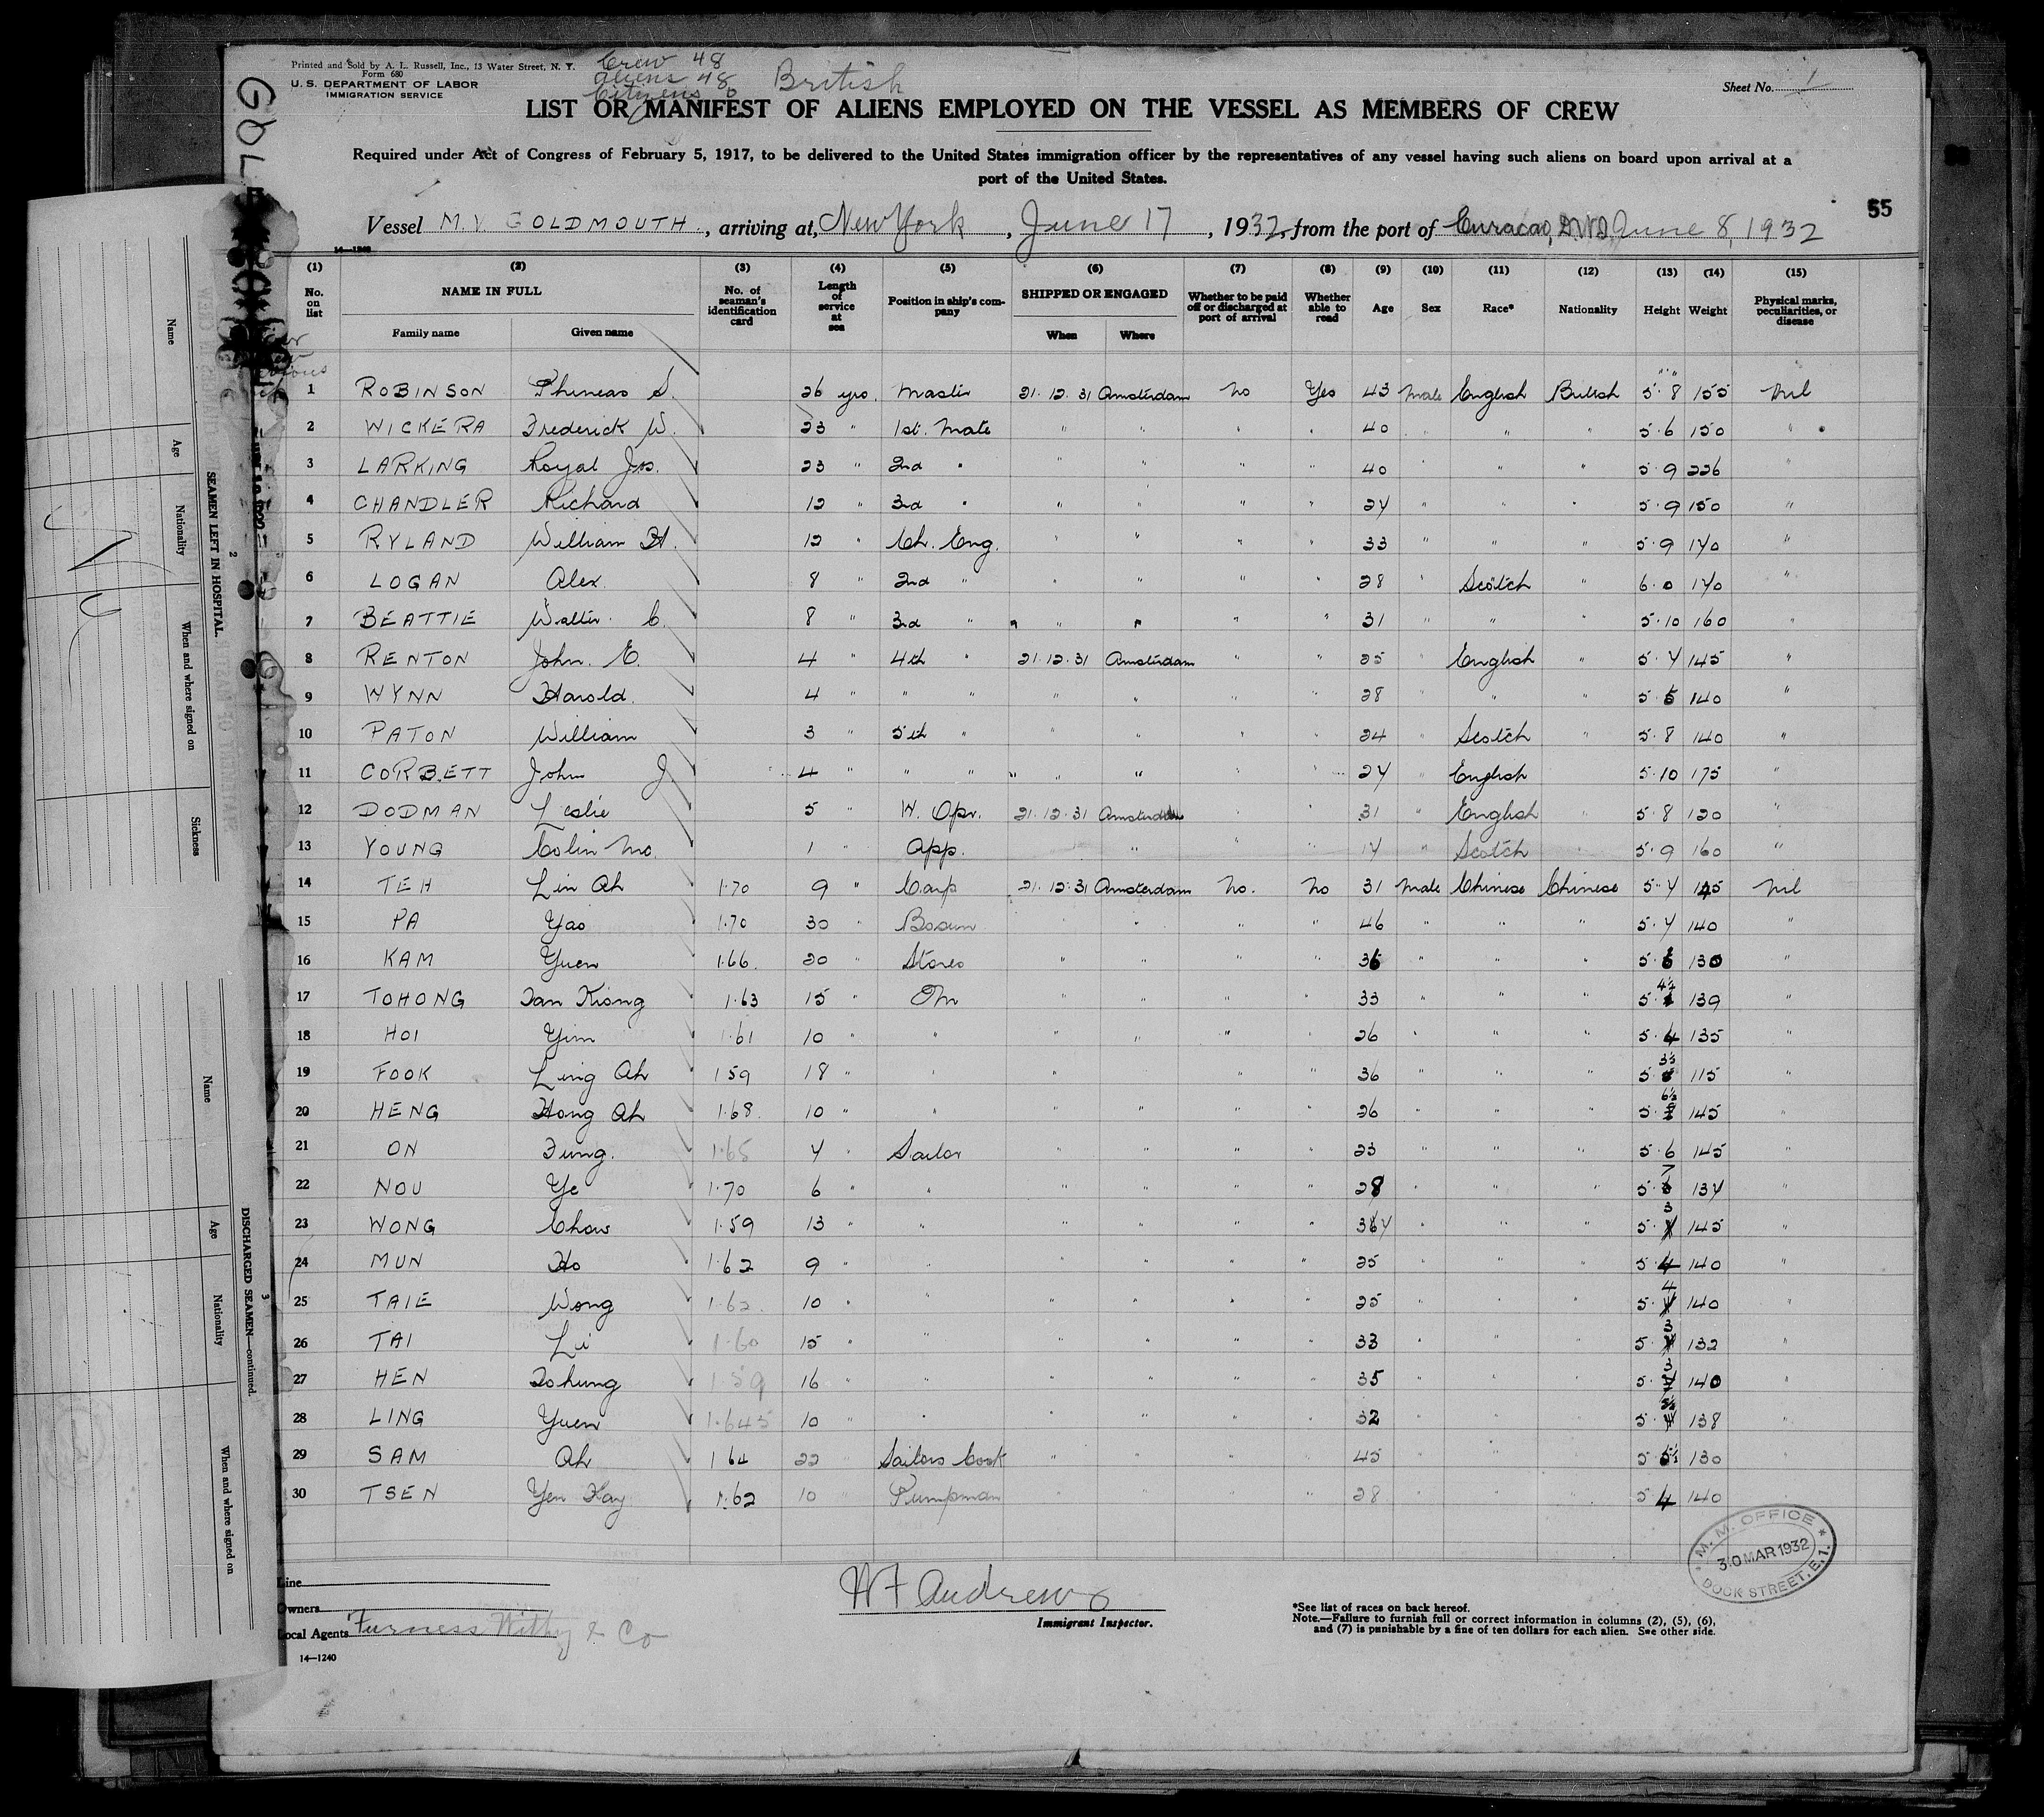 Printed and Sold by A. L. Russell, Inc., 13 Water Street, N. Y.
Form 680
U. S. DEPARTMENT OF LABOR
IMMIGRATION SERVICE
Crew 48
Aliens 48
Citizens 0
British
Sheet No. 1
LIST OR MANIFEST OF ALIENS EMPLOYED ON THE VESSEL AS MEMBERS OF CREW
Required under Act of Congress of February 5, 1917, to be delivered to the United States immigration officer by the representatives of any vessel having such aliens on board upon arrival at a
port of the United States.
55
Vessel M.V. GOLDMOUTH, arriving at, New York, June 17, 1932, from the port of Curacao, D.W.I. June 8, 1932
14—1240
(1) (2) (3) (4) (5) (6) (7) (8) (9) (10) (11) (12) (13) (14) (15)
No. on list NAME IN FULL Family name Given name No. of seaman's identification card Length of service at sea Position in ship's company SHIPPED OR ENGAGED When Where Whether to be paid off or discharged at port of arrival Whether able to read Age Sex Race* Nationality Height Weight Physical marks, peculiarities, or disease
1 ROBINSON Phineas S. 26 yrs. Master 21.12.31 Amsterdam No Yes 43 Male English British 5.8 155 Nil
2 WICKERA Frederick W. 23 " 1st. Mate " " " " 40 " " " 5.6 150 "
3 LARKING Royal Jno. 23 " 2nd " " " " " 40 " " " 5.9 226 "
4 CHANDLER Richard 12 " 3rd " " " " " 24 " " " 5.9 150 "
5 RYLAND William H. 12 " Ch. Eng. " " " " 33 " " " 5.9 170 "
6 LOGAN Alex. 8 " 2nd " " " " " 28 " Scotch " 6.0 170 "
7 BEATTIE Walter C. 8 " 3rd " " " " " 31 " " " 5.10 160 "
8 RENTON John. E. 4 " 4th " 21.12.31 Amsterdam " " 25 English " 5.7 145 "
9 WYNN Harold. 4 " " " " " " " 28 " " " 5.5 140 "
10 PATON William 3 " 5th " " " " " 24 " Scotch " 5.8 140 "
11 CORBETT John J. 4 " " " " " " " 27 " English 5.10 175 "
12 DODMAN Leslie 5 " W. Opr. 21.12.31 Amsterdam " " 31 " English " 5.8 120 "
13 YOUNG Colin Mc. 1 " App. " " " 17 " Scotch " 5.9 160 "
14 TEH Lin Ah 1.70 9 " Carp 21.12.31 Amsterdam No. No 31 Male Chinese Chinese 5.7 145 Nil
15 PA Yao 1.70 30 " Bosun " " " " 46 " " " 5.7 140 "
16 KAM Yuen 1.66. 20 " Stores " " " " 36 " " " 5. 130 "
17 TOHONG Tan Kiong 1.63 15 " Qm " " " " 33 " " " 5.4½ 139 "
18 HOI Yim 1.61 10 " " " " " " 26 " " " 5.4 135 "
19 FOOK Ling Ah 1 59 18 " " " " " " 36 " " " 5.3½ 115 "
20 HENG Hong Ah 1.68. 10 " " " " " " 26 " " " 5.6½ 145 "
21 ON Fung. 1.65 7 " Sailor " " " " 23 " " " 5.6 145 "
22 NOU Ye 1.70 6 " " " " " " 28 " " " 5.7 137 "
23 WONG Chow 1.59 13 " " " " " " 37 " " " 5.3 145 "
24 MUN Ho 1.62 9 " " " " " " 25 " " " 5.4 140 "
25 TAIE Wong 1.62. 10 " " " " " " 25 " " " 5.4 140 "
26 TAI Li 1.60 15 " " " " " " 33 " " " 5.3 132 "
27 HEN Tohung 1.59 16 " " " " " " 35 " " " 5.3 140 "
28 LING Yuen 1.645 10 " " " " " " 32 " " " 5. 138 "
29 SAM Ah 1 64 22 " Sailors Cook " " " " 45 " " " 5 5½ 130 "
30 TSEN Yen Kay 1.62 10 " Pumpman " " " " 28 " " " 5 4 140 "
M. M. OFFICE
30 MAR 1932
DOCK STREET, E.1.
Line
Owners
Local Agents Furness Withy & Co
14—1240
H F Andrews
Immigrant Inspector.
*See list of races on back hereof.
Note.—Failure to furnish full or correct information in columns (2), (5), (6),
and (7) is punishable by a fine of ten dollars for each alien. See other side.
2
SEAMEN LEFT IN HOSPITAL.
Name Age Nationality When and where signed on Sickness
3
DISCHARGED SEAMEN—continued.
Name Age Nationality When and where signed on